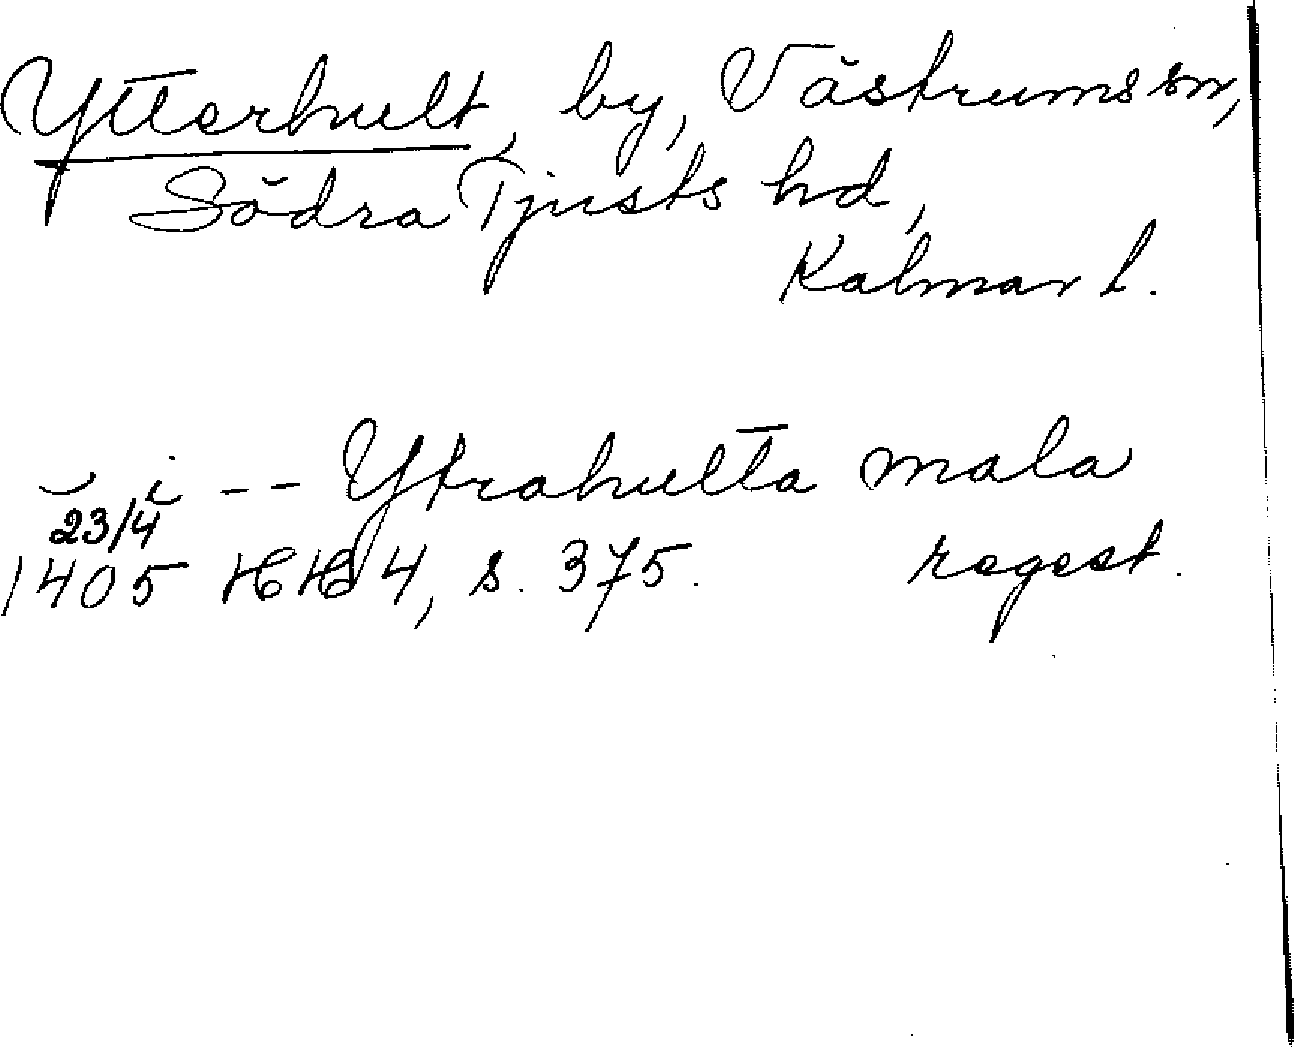 Ytterhult, by, Västrums sn,
Södra Tjusts hd,
Kalmar l.
i -- Ytrahulta mala
23/4
1405 HH 4, s. 375. regest.